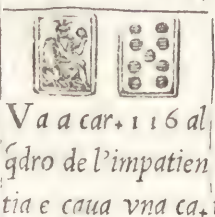 Va a car. 116 al
q̃dro de l'impatien
tia e caua vna ca.